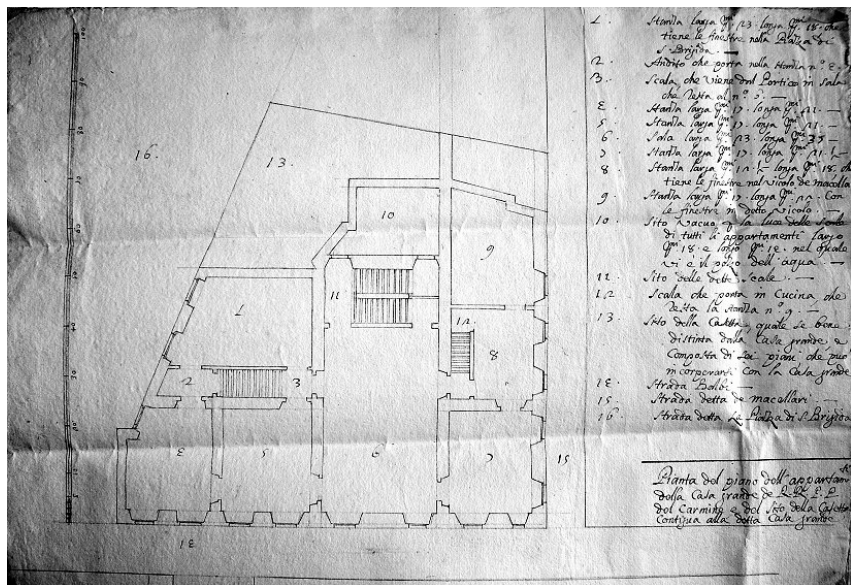 16.
13.
10
9
11
1
12
8
2
3
4
5
6
7
15
14
1. Stanza larga pmi 23. longa pmi 18. che
tiene le finestre nella Piazza di
S. Brigida. —
2 Andito che porta nella stanza nº. 4.
3 Scala, che viene dal Portico in Sala
che resta al nº. 6. —
4 Stanza larga pmi 17. longa pmi 21. —
5 Stanza larga pmi 17. longa pmi 21. —
6 Sala larga pmi 23. longa pmi 35 —
7 Stanza larga pmi 17. longa pmi 21. ½ —
8 Stanza larga pmi 12. ½ longa pmi 18. che
tiene le finestre nel Vicolo de macella
9 Stanza larga pmi 17. longa pmi 22. Con
le finestre in detto Vicolo —
10. Sito Vacuo la luce delle Scale
di tutti li appartamenti largo
pmi 18. e longo pmi 14. nel quale
vi è il pozo dell'aqua. —
11. Sito delle dette Scale. —
12 Scala che porta in Cucina che
resta la stanza nº. 9. —
13. Sito della Casetta, quale se bene
distinta dalla Casa grande, e
Composta di piani che può
incorporarsi con la Casa grande
14. Strada Balbi —
15. Strada detta de macellari. —
16. Strada detta La Piazza di S. Brigida
Pianta del piano dell'appartam.to
della Casa grande de RR. P.P.
del Carmine e del Sito della Casetta
Contigua alla detta Casa grande